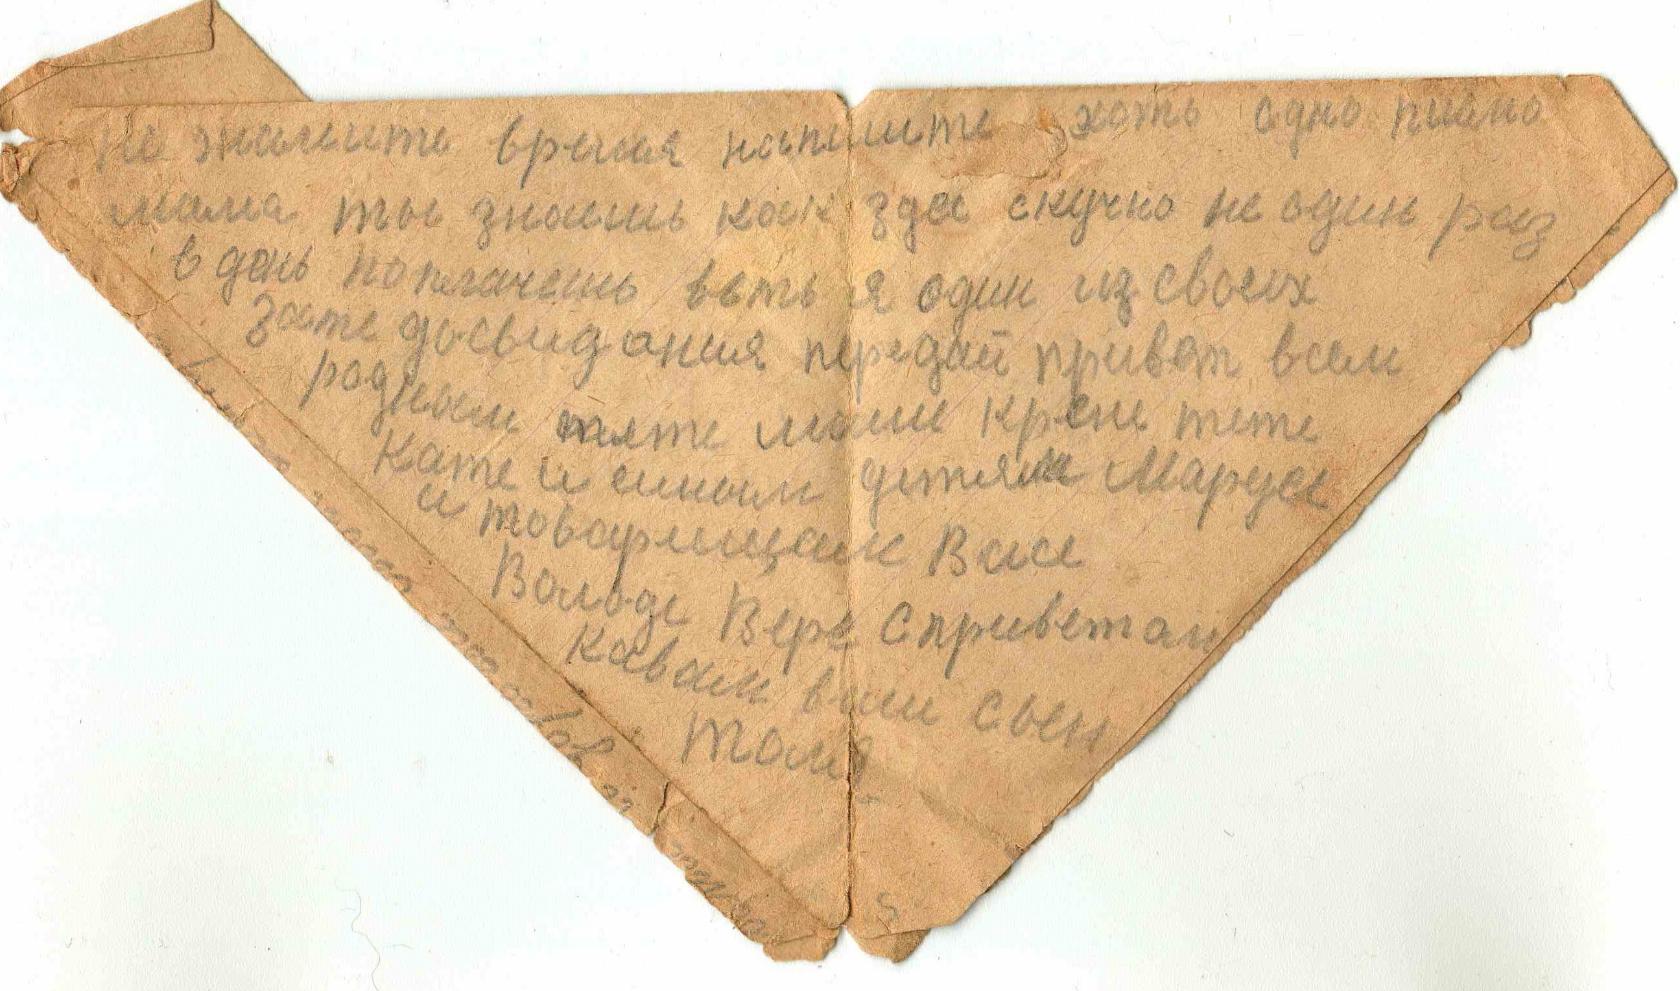 не жилейте время напишите хоть одно писмо
мама ты знаишь как здес скучно не один раз
в день поплачешь веть я один из своех
зате досвидания передай привет всем
родным тяте маме крсне тете
Кате и еиным детям Марусе
и товарищам Васе
Володе Вере Сприветам
Квам ваш сын
Толя